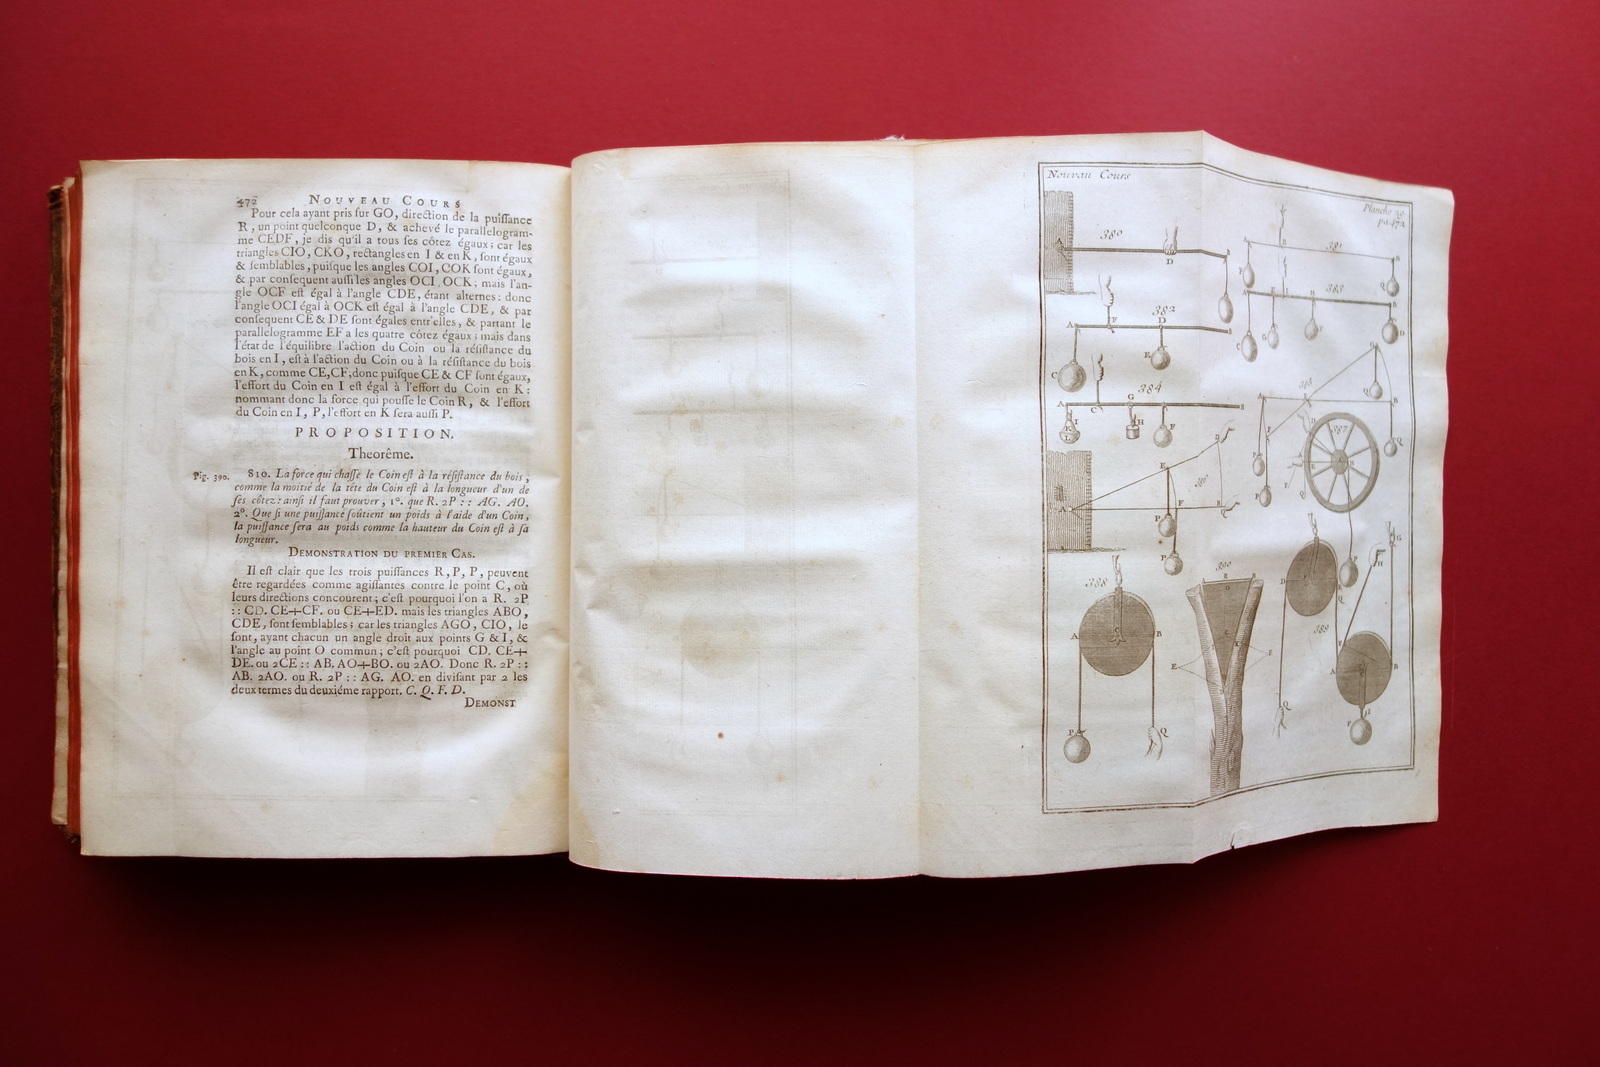 472 NOUVEAU COURS
Pour cela ayant pris ſur GO, direction de la puiſſance
R, un point quelconque D, & achevé le parallelogram-
me CEDF, je dis qu'il a tous ſes côtez égaux; car les
triangles CIO, CKO, rectangles en I & en K, ſont égaux
& ſemblables, puiſque les angles COI, COK ſont égaux,
& par conſequent auſſi les angles OCI, OCK: mais l'an-
gle OCF eſt égal à l'angle CDE, étant alternes: donc
l'angle OCI égal à OCK eſt égal à l'angle CDE, & par
conſequent CE & DE ſont égales entr'elles, & partant le
parallelogramme EF a les quatre côtez égaux: mais dans
l'état de l'équilibre l'action du Coin ou la réſiſtance du
bois en I, eſt à l'action du Coin ou à la réſiſtance du bois
en K, comme CE, CF, donc puiſque CE & CF ſont égaux,
l'effort du Coin en I eſt égal à l'effort du Coin en K:
nommant donc la force qui pouſſe le Coin R, & l'effort
du Coin en I, P, l'effort en K ſera auſſi P.
PROPOSITION.
Theorême.
Fig. 390. 810. La force qui chaſſe le Coin eſt à la réſiſtance du bois,
comme la moitié de la tête du Coin eſt à la longueur d'un de
ſes côtez: ainſi il faut prouver, 1°. que R. 2P :: AG. AO.
2°. Que ſi une puiſſance ſoûtient un poids à l'aide d'un Coin,
la puiſſance ſera au poids comme la hauteur du Coin eſt à ſa
longueur.
DEMONSTRATION DU PREMIER CAS.
Il eſt clair que les trois puiſſances R, P, P, peuvent
être regardées comme agiſſantes contre le point C, où
leurs directions concourent; c'eſt pourquoi l'on a R. 2P
:: CD. CE+CF. ou CE+ED. mais les triangles ABO,
CDE, ſont ſemblables; car les triangles AGO, CIO, le
ſont, ayant chacun un angle droit aux points G & I, &
l'angle au point O commun; c'eſt pourquoi CD. CE+
DE. ou 2CE :: AB. AO+BO. ou 2AO. Donc R. 2P ::
AB. 2AO. ou R. 2P :: AG. AO. en diviſant par 2 les
deux termes du deuxiéme rapport. C. Q. F. D.
DEMONST
Nouveau Cours
Planche
pa. 472
380
A
D
381
382
A F D
C
383
384
A C G
I H F
387
388
A C B
P Q
389
390